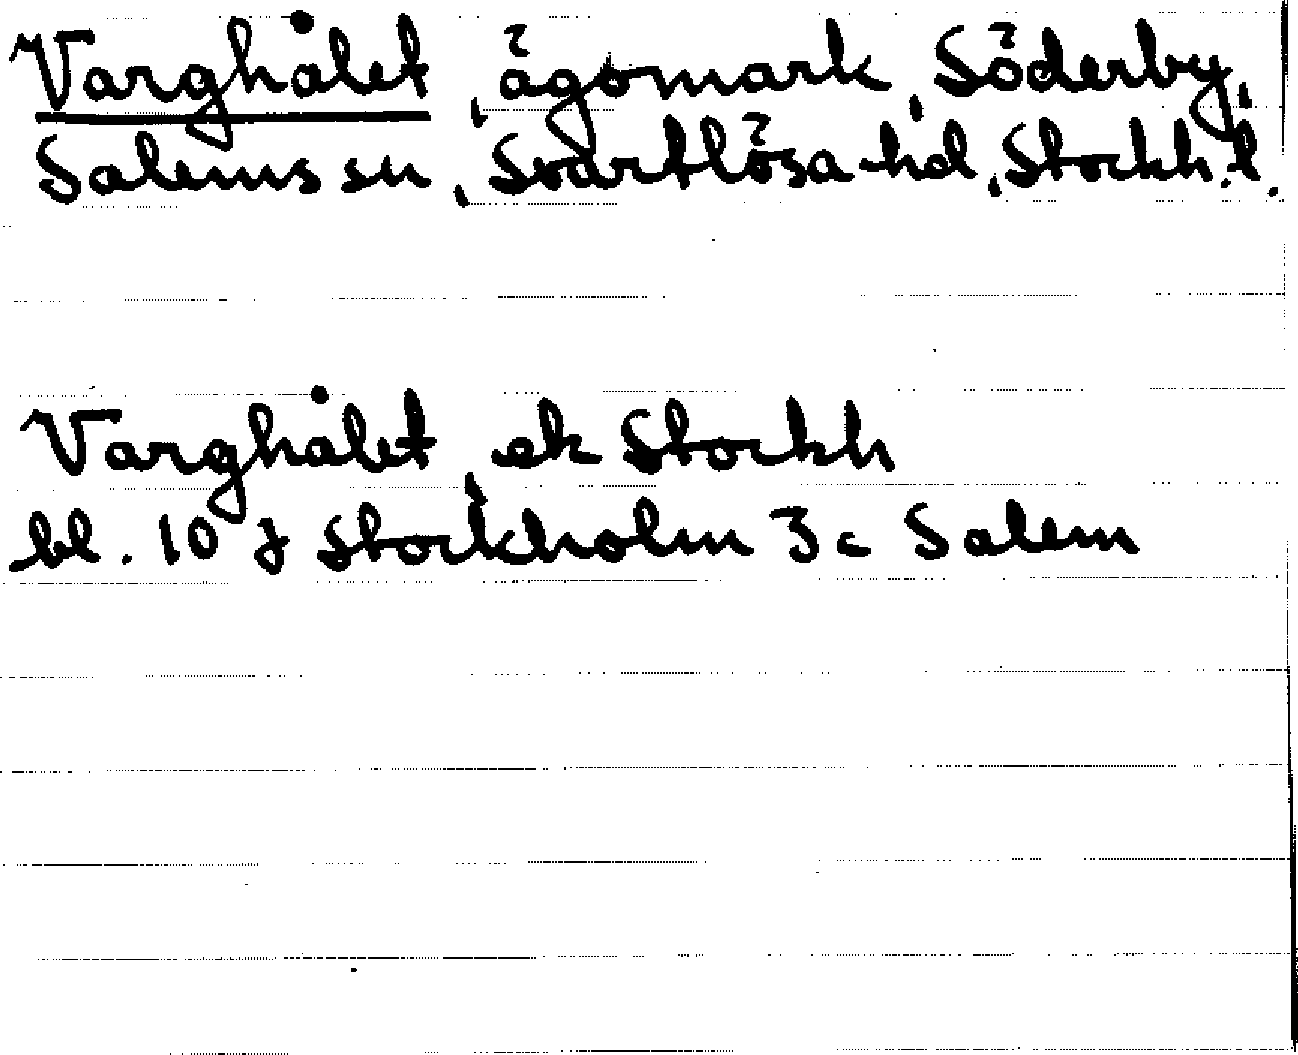 Varghålet, ägomark, Söderby,
Salems sn, Svartlösa hd, Stockh. l.
Varghålet, ek Stockh
bl. 10 J Stockholm 3 c Salem